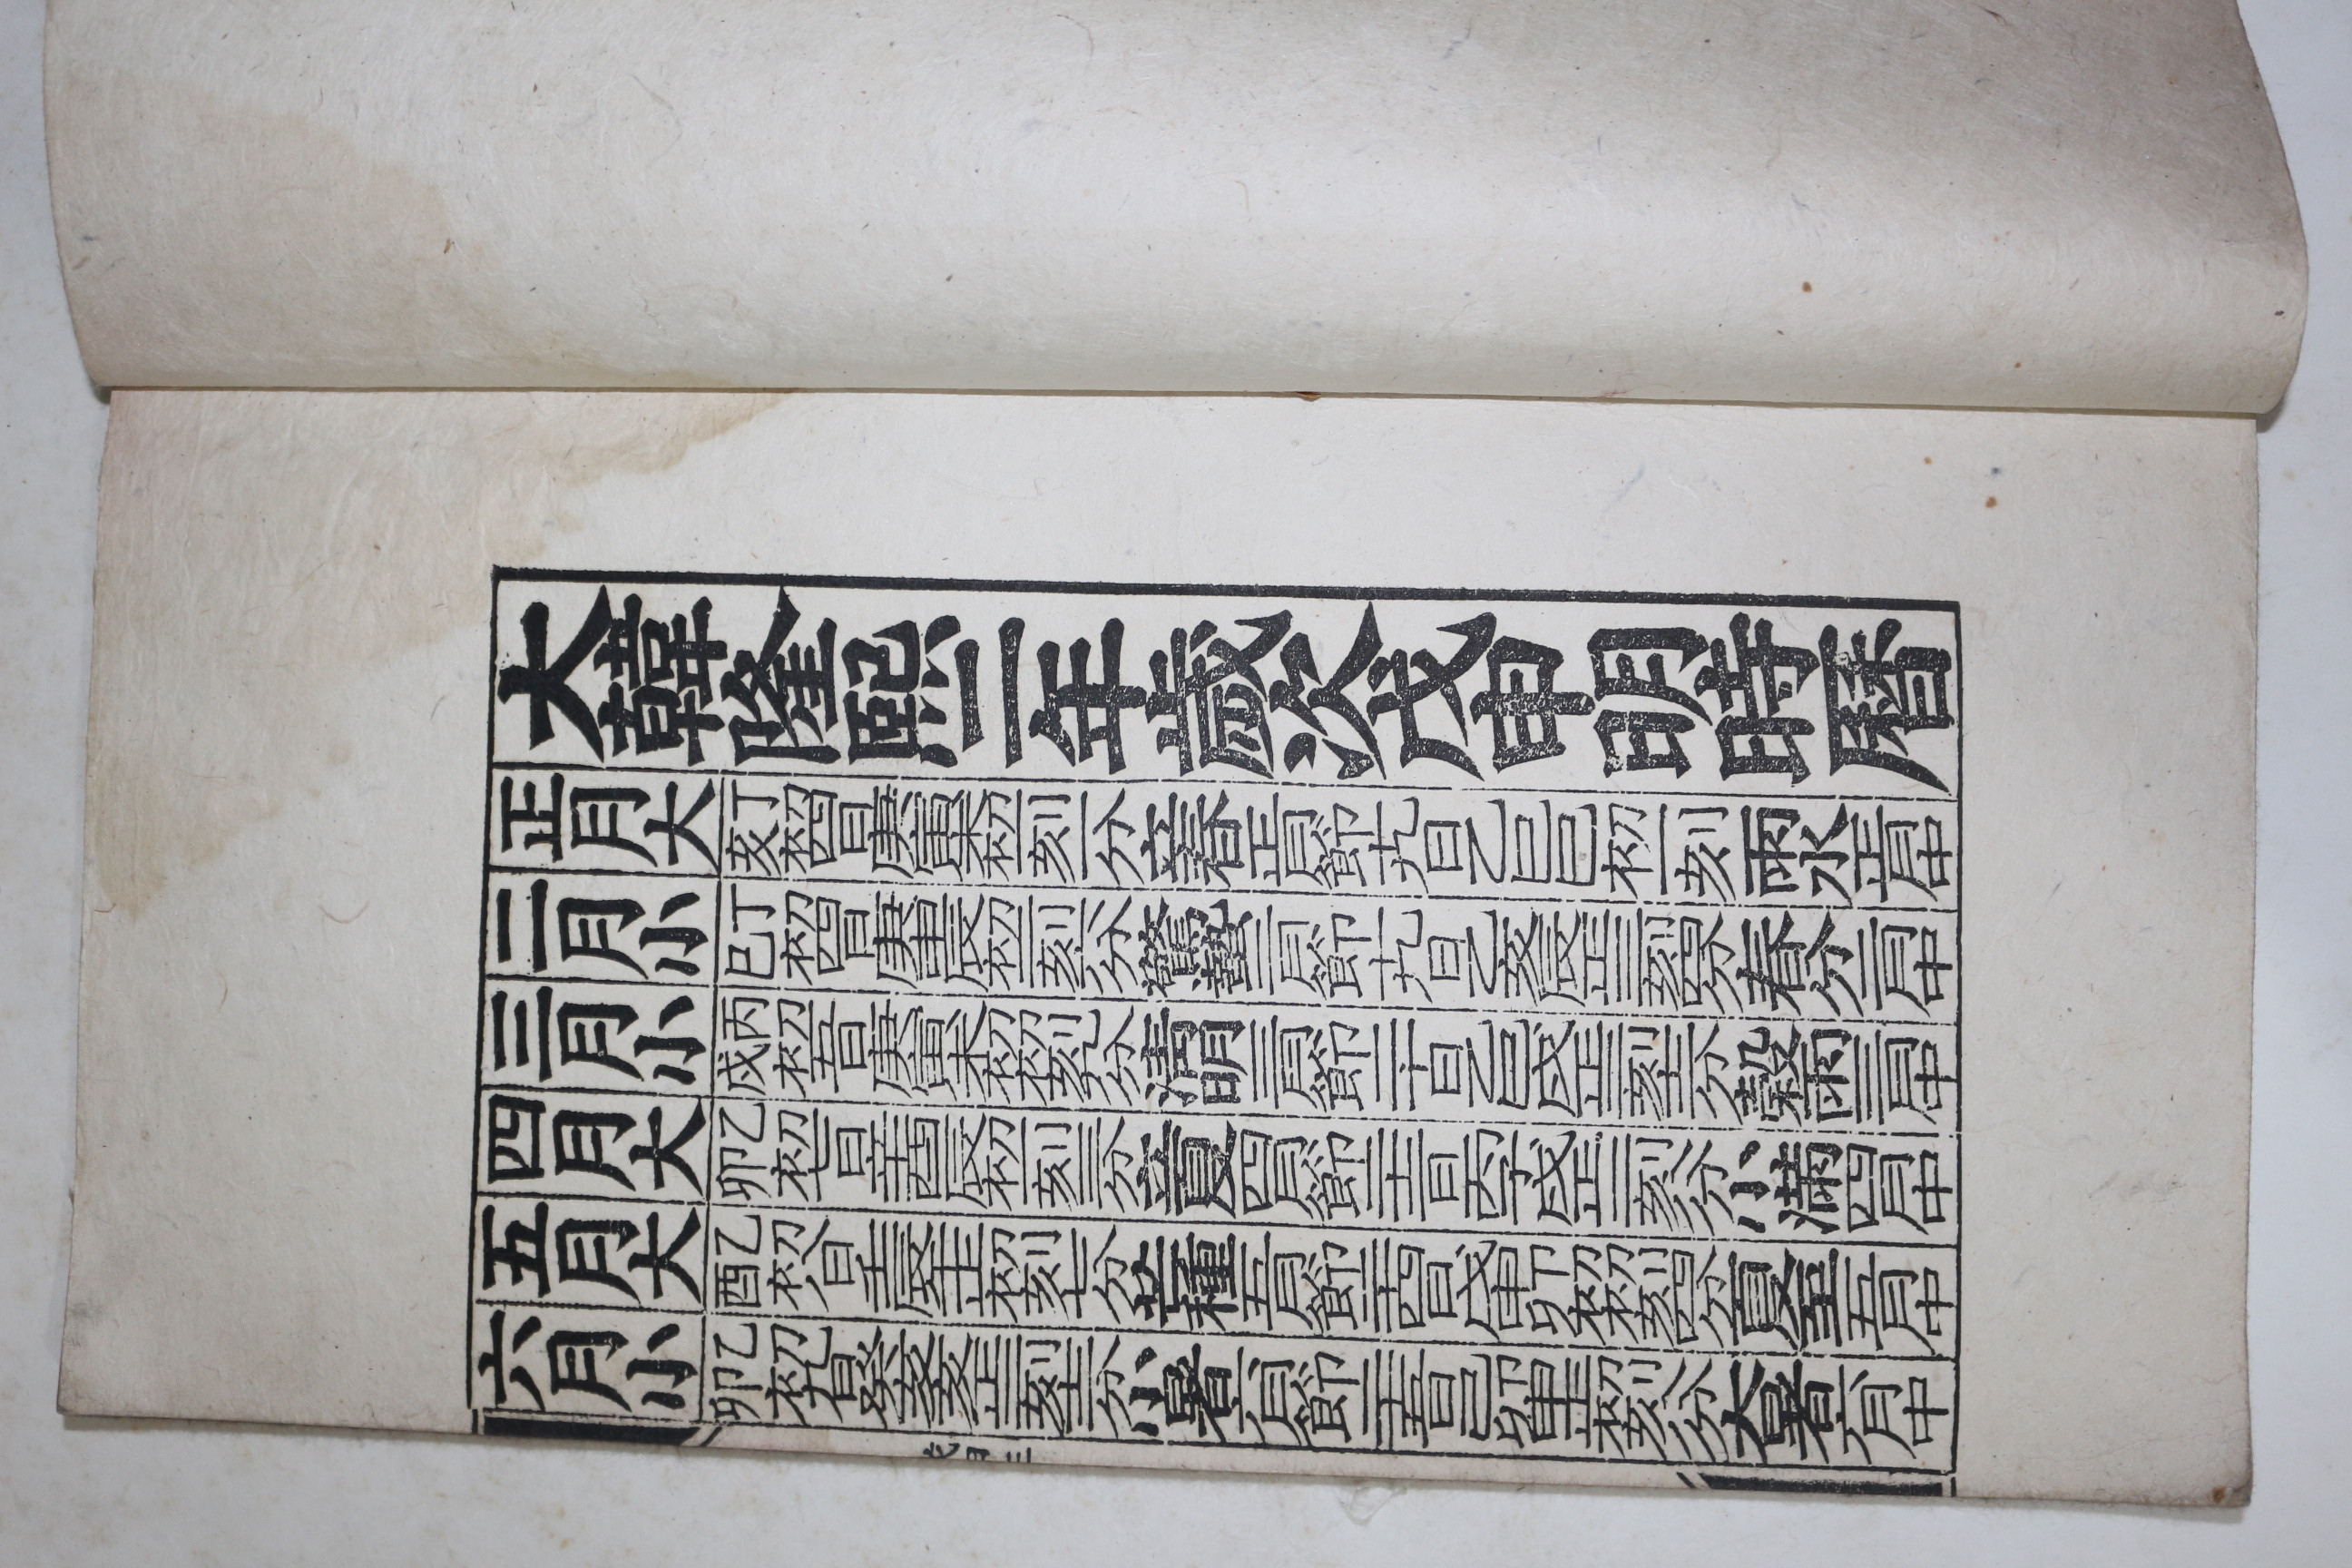 大韓隆熙二年歲次戊申明時曆
正月大 丁亥 初四日庚寅未初一刻一分立春正月節十九日乙巳巳初一刻雨水正月中
二月小 丁巳 初四日庚申辰初二刻六分驚蟄二月節十九日乙亥辰正三刻四分春分二月中
三月小 丙戌 初五日庚寅未初初刻九分清明三月節二十日乙巳戌正二刻十二分穀雨三月中
四月大 乙卯 初七日辛酉辰初一刻三分立夏四月節二十二日丙子戌正二刻八分小滿四月中
五月大 乙酉 初八日壬辰午正初刻七分芒種五月節二十四日戊申卯初初刻四分夏至五月中
六月小 乙卯 初九日癸亥亥正三刻十二分小暑六月節二十五日己卯申正初刻八分大暑六月中